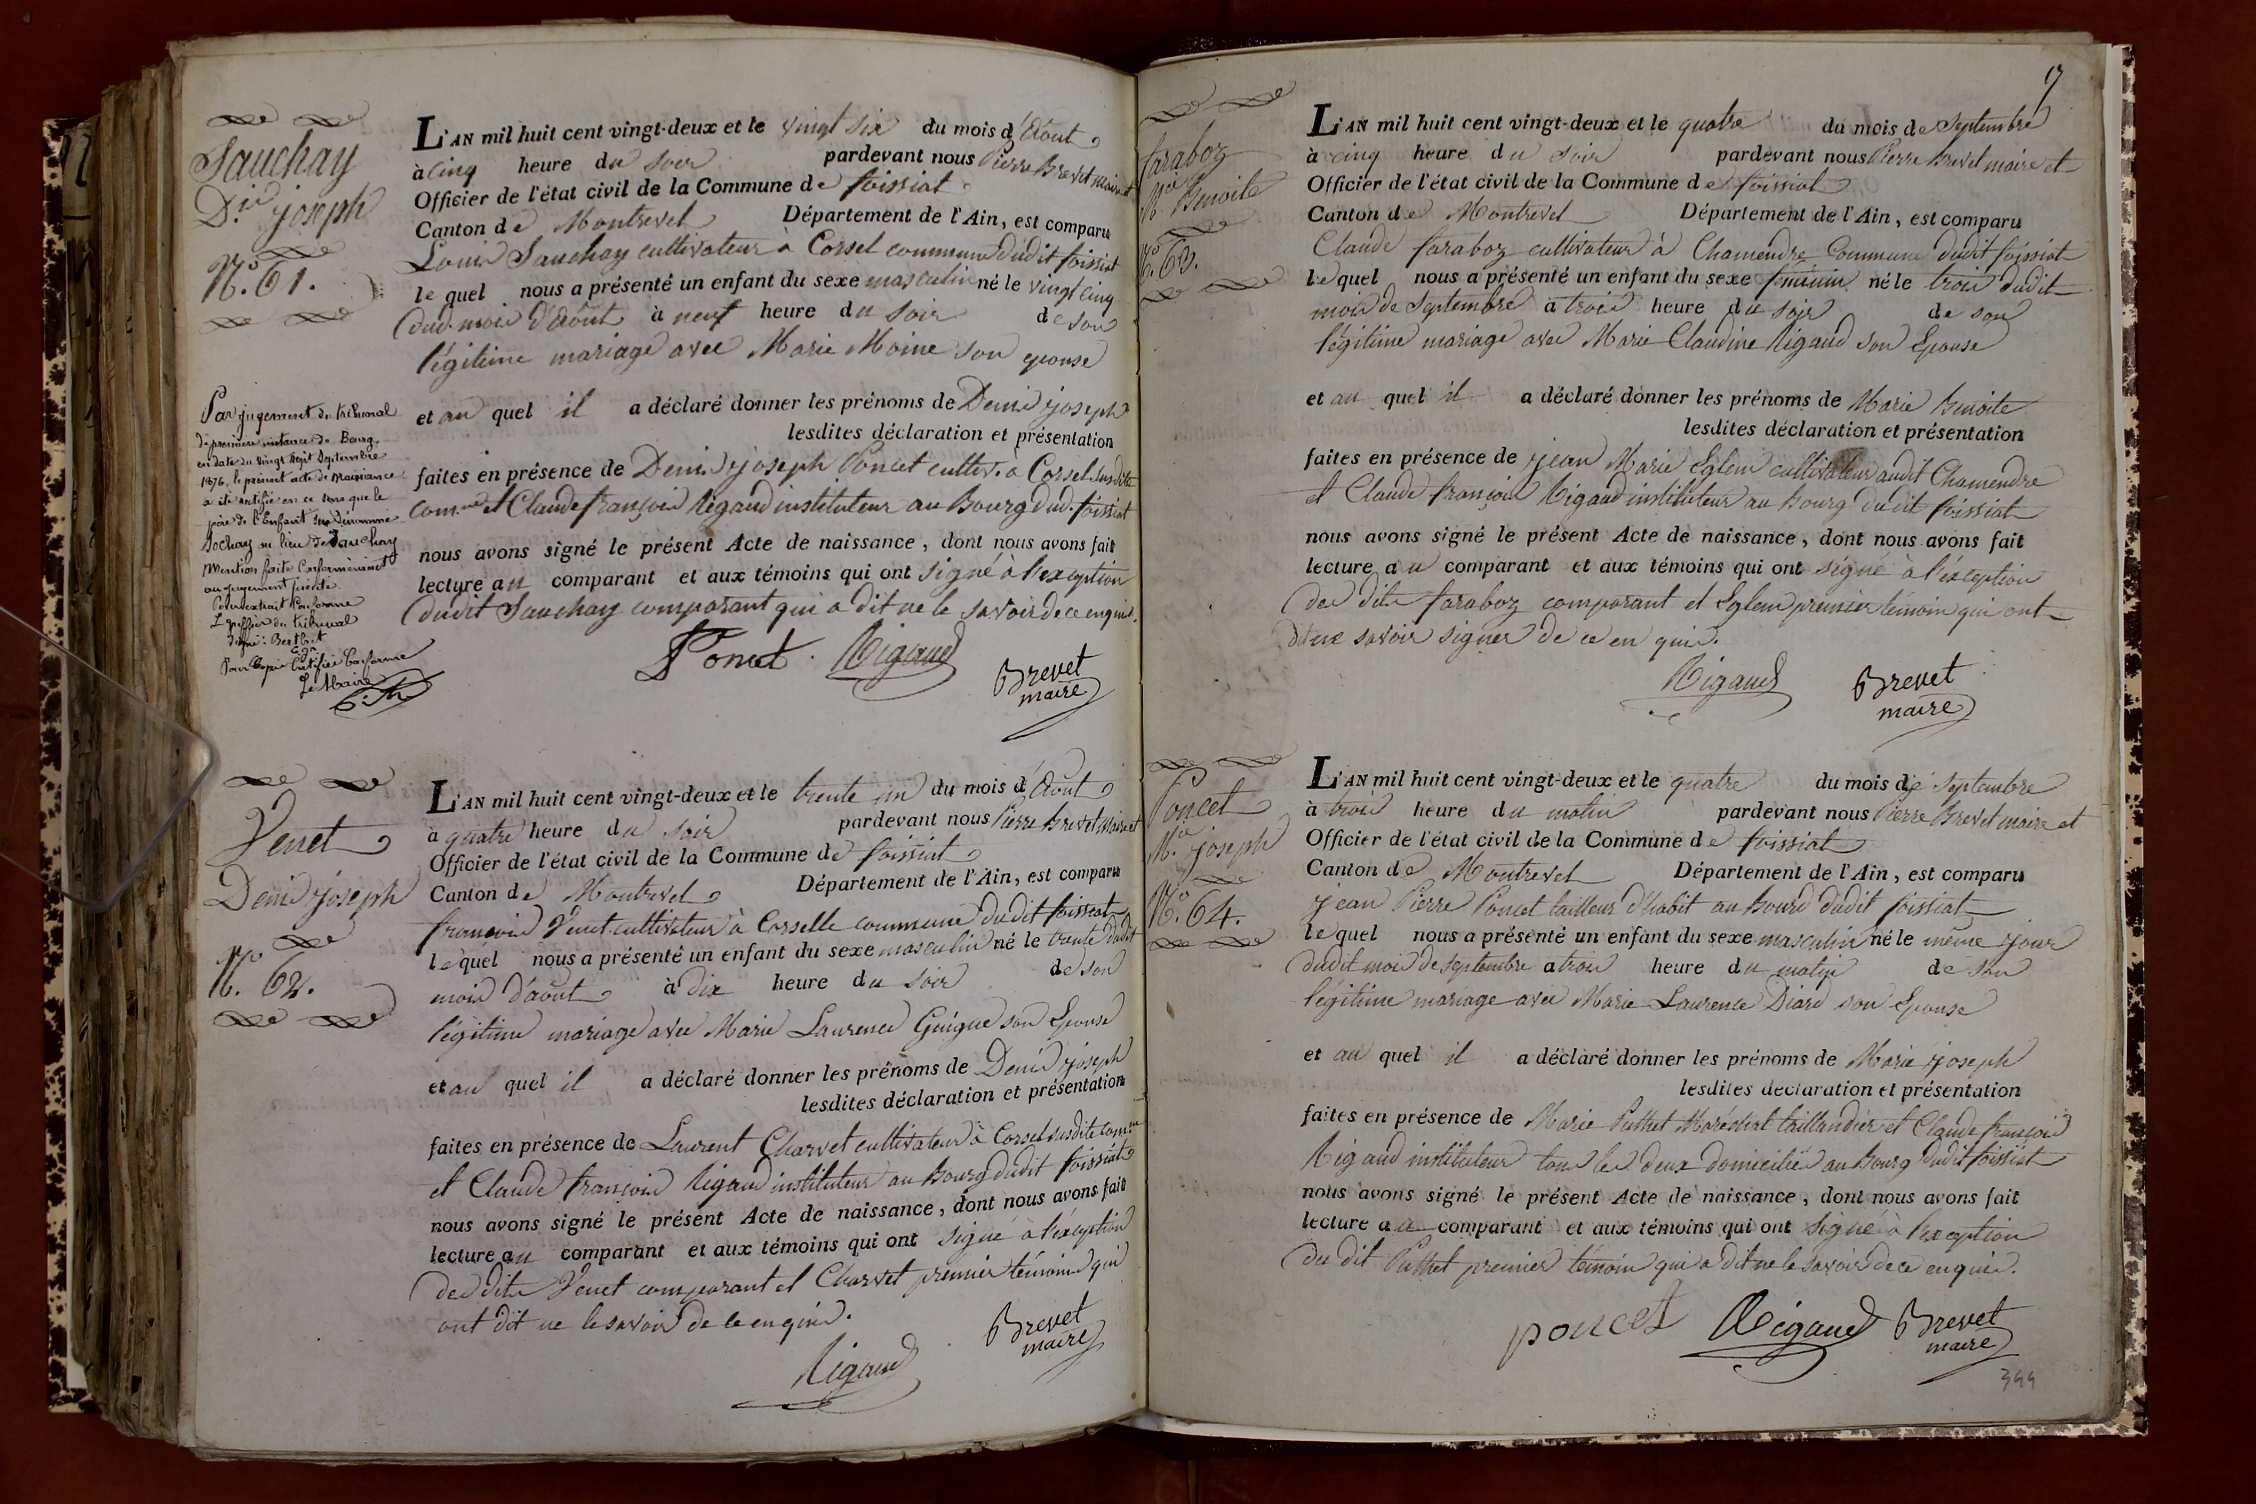 Sauchay
D.is joseph
N.o 61.
L'AN mil huit cent vingt-deux et le vingt six du mois d'Août
à cinq heure du soir pardevant nous Pierre Brevet maire et
Officier de l'état civil de la Commune de foissiat
Canton de Montrevel Département de l'Ain, est comparu
Louis Sauchay cultivateur à Corsel commune dudit foissiat
lequel nous a présenté un enfant du sexe masculin né le vingt cinq
dud. mois d'août à neuf heure du soir de son
légitime mariage avec Marie Moine son epouse
et au quel il a déclaré donner les prénoms de Denis joseph
lesdites déclaration et présentation
faites en présence de Denis joseph Poncet cultiv. à Corsel susdite
com.ne et Claude françois Rigaud instituteur au Bourg dud. foissiat
nous avons signé le présent Acte de naissance, dont nous avons fait
lecture au comparant et aux témoins qui ont signé à l'exception
dudit Sauchay comparant qui a dit ne le savoir de ce enquis.
Poncet Rigaud Brevet
maire
Par jugement du tribunal
de première instance de Bourg
en date du vingt sept Septembre
1876, le présent acte de naissance
a été rectifié en ce sens que le
père de l'Enfant sera dénommé
Sochay au lieu de Sauchay
Mention faite Conformément
au jugement précité
Pour extrait Conforme
Le greffier du tribunal
Signé: Berthet
Pour Copie Certifiée Conforme
Le Maire
Venet
Denis joseph
N.o 62.
L'AN mil huit cent vingt-deux et le trente un du mois d'Août
à quatre heure du soir pardevant nous Pierre Brevet Maire et
Officier de l'état civil de la Commune de foissiat
Canton de Montrevel Département de l'Ain, est comparu
françois Venet cultivateur à Corselle commune dudit foissiat
lequel nous a présenté un enfant du sexe masculin né le trente dudit
mois d'août à dix heure du soir de son
légitime mariage avec Marie Laurence Guigue son Epouse
et au quel il a déclaré donner les prénoms de Denis joseph
lesdites déclaration et présentation
faites en présence de Laurent Charvet cultivateur à Corsel susdite comm.ne
et Claude françois Rigaud instituteur au Bourg dudit foissiat
nous avons signé le présent Acte de naissance, dont nous avons fait
lecture au comparant et aux témoins qui ont signé à l'exception
des dits Venet comparant et Charvet premier témoins qui
ont dit ne le savoir de ce enquis.
Rigaud Brevet
maire
faraboz
M.ie Benoite
N.o 63.
L'AN mil huit cent vingt-deux et le quatre du mois de Septembre
à cinq heure du soir pardevant nous Pierre Brevet maire et
Officier de l'état civil de la Commune de foissiat
Canton de Montrevel Département de l'Ain, est comparu
Claude faraboz cultivateur à Chamendre Commune dudit foissiat
lequel nous a présenté un enfant du sexe féminin né le trois dudit
mois de Septembre à trois heure du soir de son
légitime mariage avec Marie Claudine Rigaud son Epouse
et au quel il a déclaré donner les prénoms de Marie Benoite
lesdites déclaration et présentation
faites en présence de jean Marie Eglem cultivateur audit Chamendre
et Claude françois Rigaud instituteur au Bourg dudit foissiat
nous avons signé le présent Acte de naissance, dont nous avons fait
lecture au comparant et aux témoins qui ont signé à l'exception
des dits faraboz comparant et Eglem premier témoin qui ont
dit ne savoir signer de ce en quis.
Rigaud Brevet
maire
Poncet
M.ie joseph
N.o 64.
L'AN mil huit cent vingt-deux et le quatre du mois de septembre
à trois heure du matin pardevant nous Pierre Brevet maire et
Officier de l'état civil de la Commune de foissiat
Canton de Montrevel Département de l'Ain, est comparu
jean Pierre Poncet tailleur d'habit au Bourd dudit foissiat
lequel nous a présenté un enfant du sexe masculin né le même jour
dudit mois de septembre a trois heure du matin de son
légitime mariage avec Marie Laurence Diard son Epouse
et au quel il a déclaré donner les prénoms de Marie joseph
lesdites déclaration et présentation
faites en présence de Marie Puthet Maréchal taillandier et Claude françois
Rigaud instituteur tous les deux domiciliés au Bourg dudit foissiat
nous avons signé le présent Acte de naissance, dont nous avons fait
lecture au comparant et aux témoins qui ont signé à l'exception
du dit Puthet premier témoin qui a dit ne le savoir de ce enquis.
poncet Rigaud Brevet
maire
399